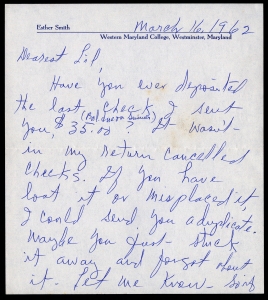 Esther Smith
March 16, 1962
Western Maryland College, Westminster, Maryland
Dearest Lil,
Have you ever deposited
the last check I sent
you, $35.00? It wasn't
in my return cancelled
checks. If you have
lost it or misplaced it
I could send you a duplicate.
Maybe you just stuck
it away and forgot about
it. Let me know -